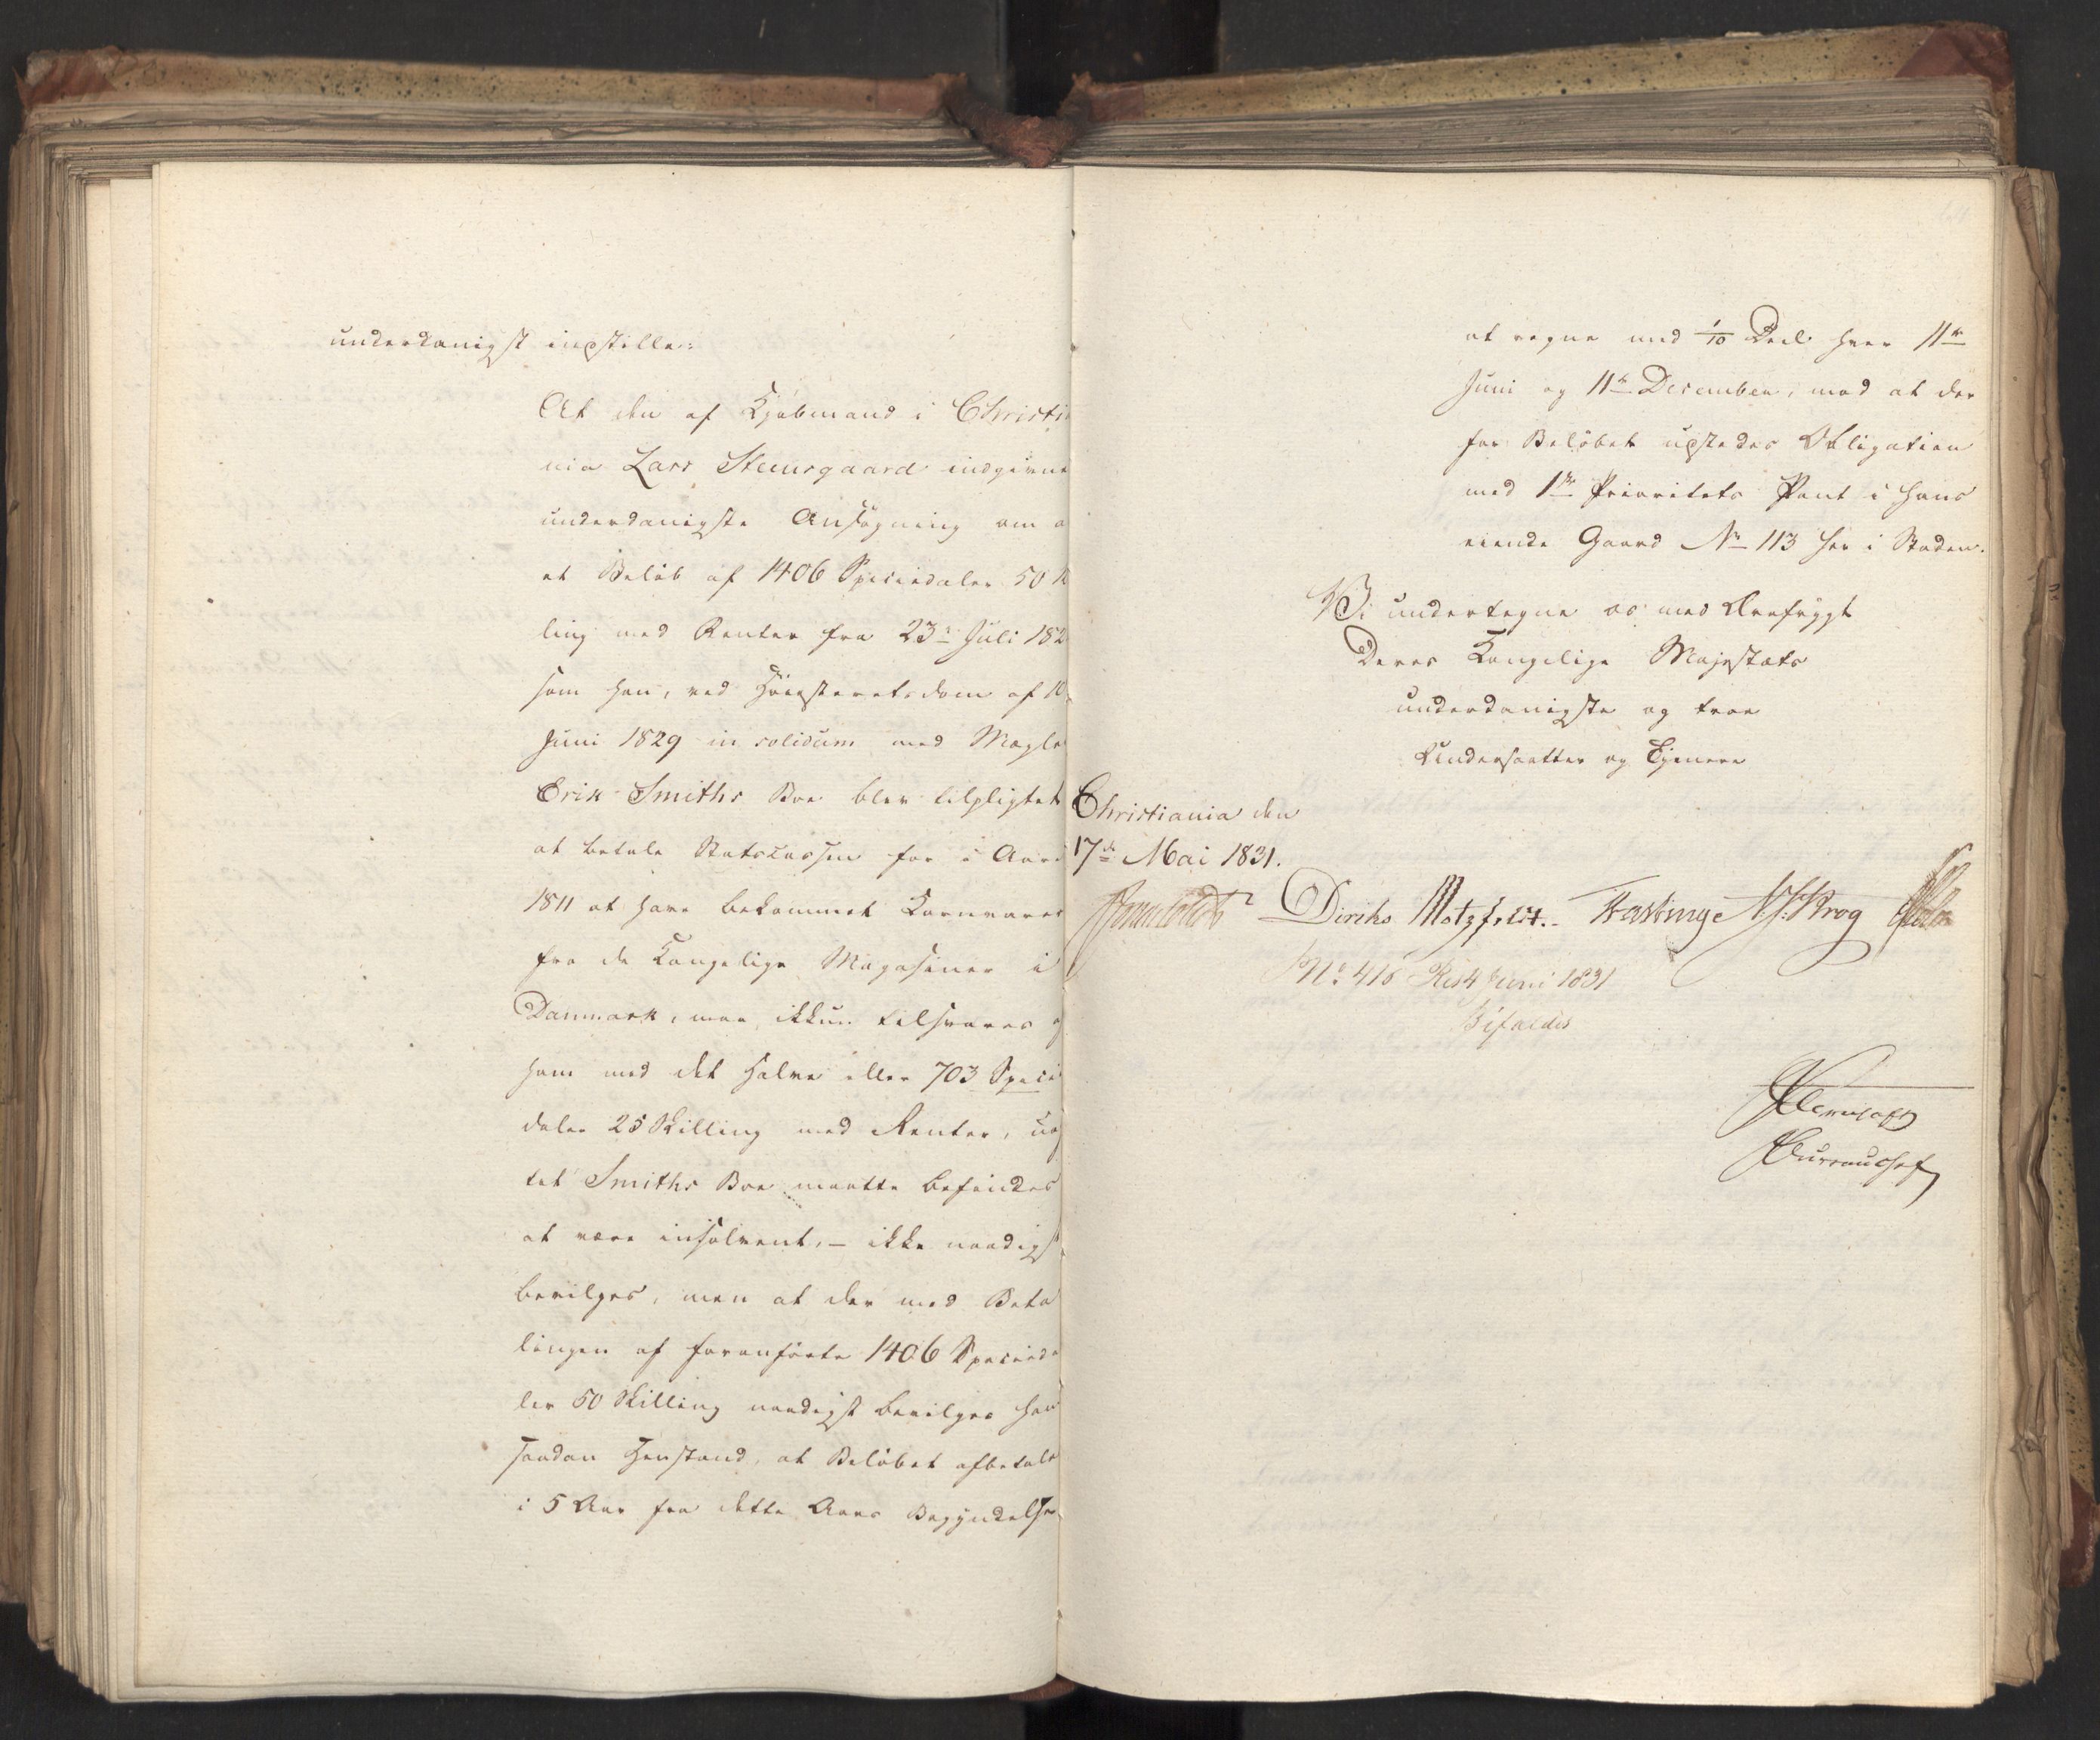 underdanigst indstille:
At den af Kjøbmand i Christi
nia Lars Steensgaard indgivne
underdanigste Ansøgning om a
et Beløb af 1406 Speciedaler 50 
ling med Renter fra 23de Juli 182
som han, ved Høiesteretsdom af 10
Juni 1829 in solidum med Mægler
Erik Smiths Boe blev tilpligtet
at betale Statscassen for i Aaret
1811 at have bekommet Kornvarer
fra de Kongelige Magasiner i
Danmark, maa ikkun tilsvares af
ham med det Halve eller 703 Specie
daler 25 Skilling med Renter, uag
tet Smiths Boe maatte befindes
at være insolvent, – ikke naadigst
bevilges, men at der med Beta
lingen af foranførte 1406 Specieda
ler 50 Skilling naadigst bevilges ham
saadan Henstand, at Beløbet afbetales
i 5 Aar fra dette Aars Begyndelse
at regne med 1/10 Deel hver 11te
Juni og 11te December, mod at der
for Beløbet udstedes Obligation
med 1ste Prioritets Pant i hans
eiende Gaard No 113 her i Staden.
Vi undertegne os med Ærefrygt
Deres Kongelige Majestæts
underdanigste og troe
Undersaatter og Tjenere
Christiania den
17de Mai 1831.
Diriks Motzfeldt. Fasting N. J. Krog
No 416 Res 4 Juni 1831
Bifaldes
Bureauchef